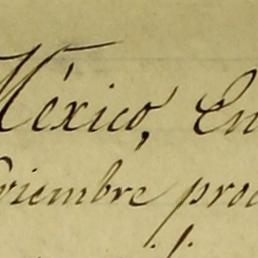 México, En
viembre prod